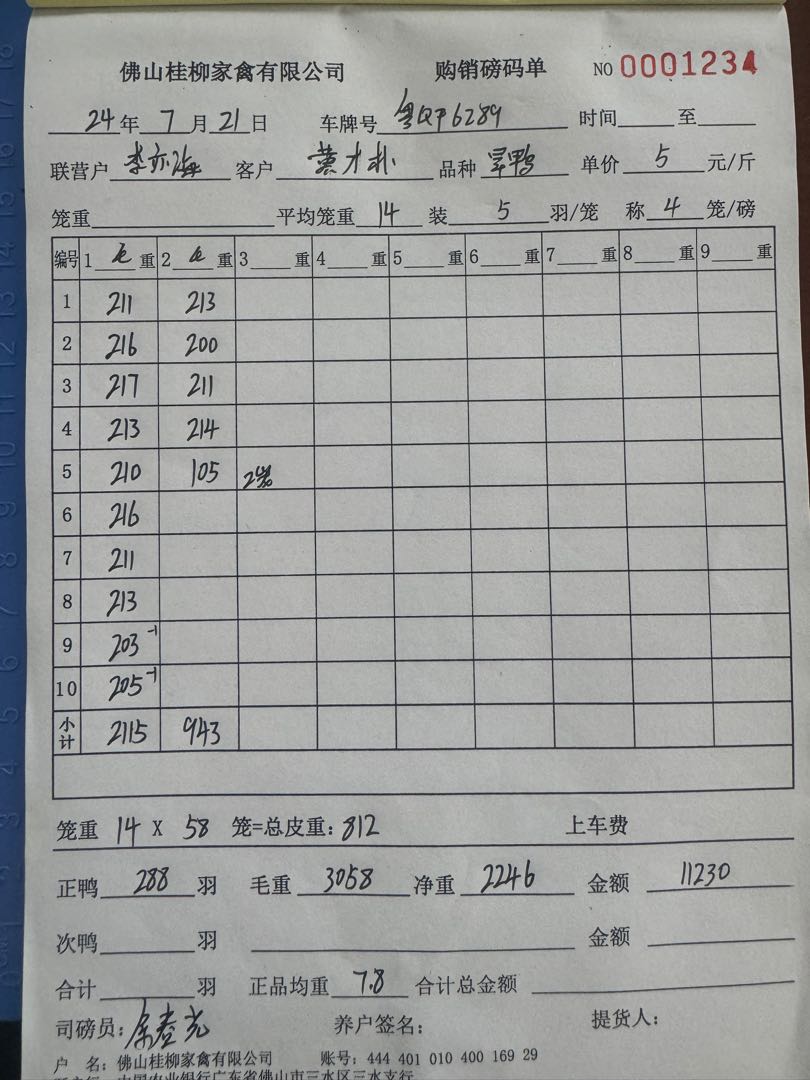 佛山桂柳家禽有限公司 购销磅码单 NO 0001234
24年7月21日 车牌号 粤QP6289 时间 至
联营户 李亦海 客户 黄才朴 品种 旱鸭 单价 5 元/斤
笼重 平均笼重 14 装 5 羽/笼 称 4 笼/磅
编号 1 毛 重 2 毛 重 3 重 4 重 5 重 6 重 7 重 8 重 9 重
1 211 213
2 216 200
3 217 211
4 213 214
5 210 105
6 216
7 211
8 213
9 203 -1
10 205 -1
小计 2115 943
笼重 14 X 58 笼=总皮重：812 上车费
正鸭 288 羽 毛重 3058 净重 2246 金额 11230
次鸭 羽 金额
合计 羽 正品均重 7.8 合计总金额
司磅员： 养户签名： 提货人：
户 名：佛山桂柳家禽有限公司 账号：444 401 010 400 169 29
中国农业银行广东省佛山市三水区三水支行